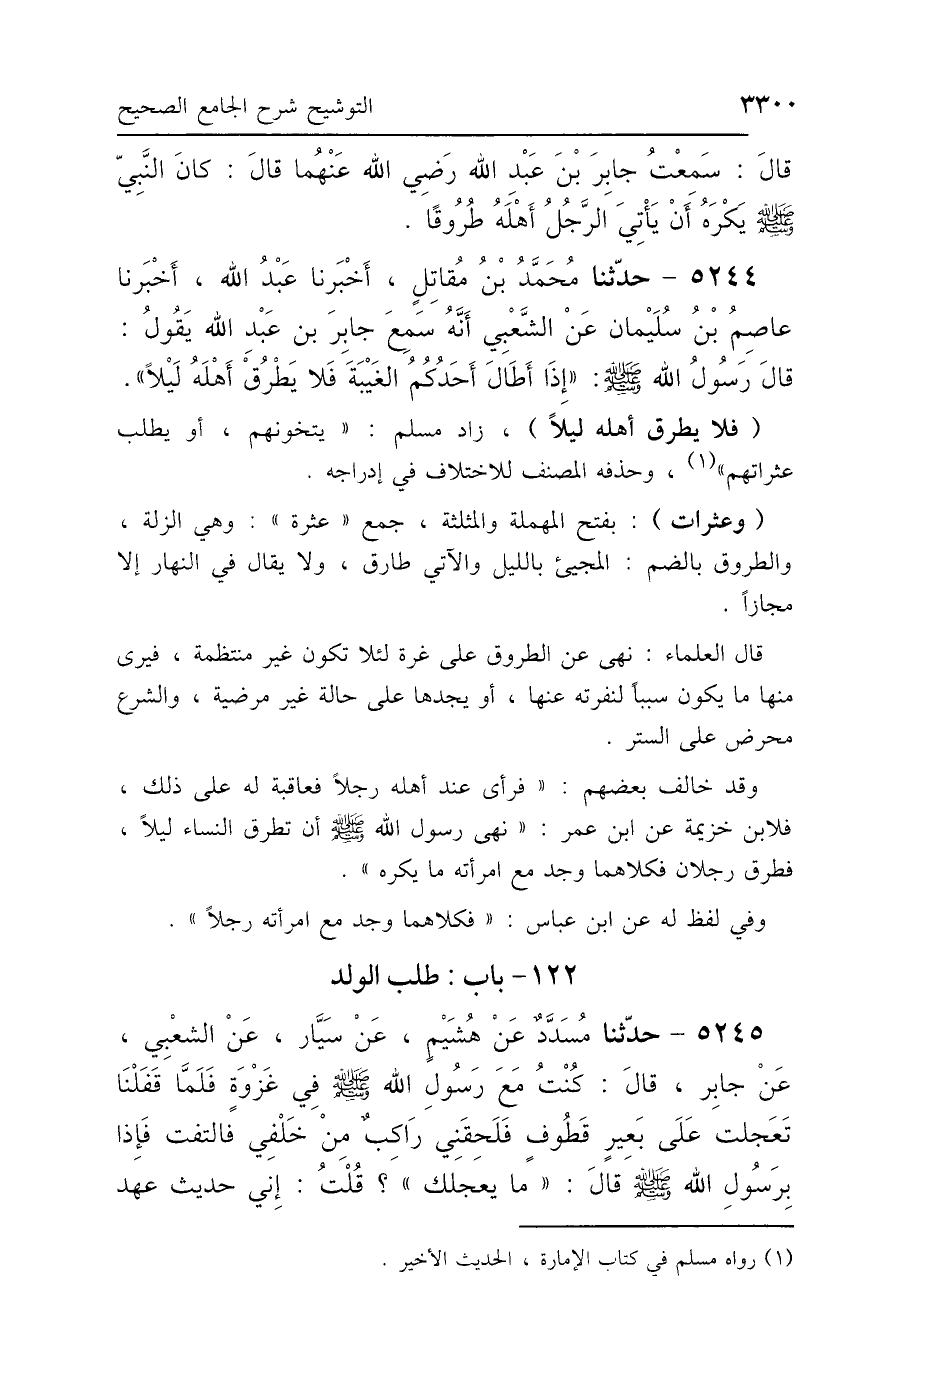 ٣٣٠٠ التوشيح شرح الجامع الصحيح
قالَ : سَمِعْتُ جابِرَ بْنَ عَبْدِ الله رَضِي الله عَنْهُما قالَ : كانَ النَّبِيّ
ﷺ يَكْرَهُ أَنْ يَأْتِيَ الرَّجُلُ أَهْلَهُ طُرُوقًا .
٥٢٤٤ – حدّثنا مُحَمَّدُ بْنُ مُقاتِلٍ ، أَخْبَرنا عَبْدُ الله ، أَخْبَرنا
عاصِمُ بْنُ سُلَيْمان عَنْ الشَّعْبِي أَنَّهُ سَمِعَ جابِرَ بن عَبْدِ الله يَقُولُ :
قالَ رَسُولُ الله ﷺ : «إِذَا أَطَالَ أَحَدُكُمُ الغَيْبَةَ فَلا يَطْرُقْ أَهْلَهُ لَيْلاً».
( فلا يطرق أهله ليلاً ) ، زاد مسلم : « يتخونهم ، أو يطلب
عثراتهم»(١) ، وحذفه المصنف للاختلاف في إدراجه .
( وعثرات ) : بفتح المهملة والمثلثة ، جمع « عثرة » : وهي الزلة ،
والطروق بالضم : المجيئ بالليل والآتي طارق ، ولا يقال في النهار إلا
مجازاً .
قال العلماء : نهى عن الطروق على غرة لئلا تكون غير منتظمة ، فيرى
منها ما يكون سبباً لنفرته عنها ، أو يجدها على حالة غير مرضية ، والشرع
محرض على الستر .
وقد خالف بعضهم : « فرأى عند أهله رجلاً فعاقبة له على ذلك ،
فلابن خزيمة عن ابن عمر : « نهى رسول الله ﷺ أن تطرق النساء ليلاً ،
فطرق رجلان فكلاهما وجد مع امرأته ما يكره » .
وفي لفظ له عن ابن عباس : « فكلاهما وجد مع امرأته رجلاً » .
١٢٢– باب : طلب الولد
٥٢٤٥ – حدّثنا مُسَدَّدٌ عَنْ هُشَيْمٍ ، عَنْ سَيَّار ، عَنْ الشعْبِي ،
عَنْ جابِر ، قالَ : كُنْتُ مَعَ رَسُولِ الله ﷺ فِي غَزْوَةٍ فَلَمَّا قَفَلْنَا
تَعَجلت عَلَى بَعِيرٍ قَطُوفٍ فَلَحِقَنِي رَاكِبٌ مِنْ خَلْفِي فالتفت فَإِذا
بِرَسُولِ الله ﷺ قالَ : « ما يعجلك » ؟ قُلْتُ : إِني حديث عهد
(١) رواه مسلم في كتاب الإمارة ، الحديث الأخير .